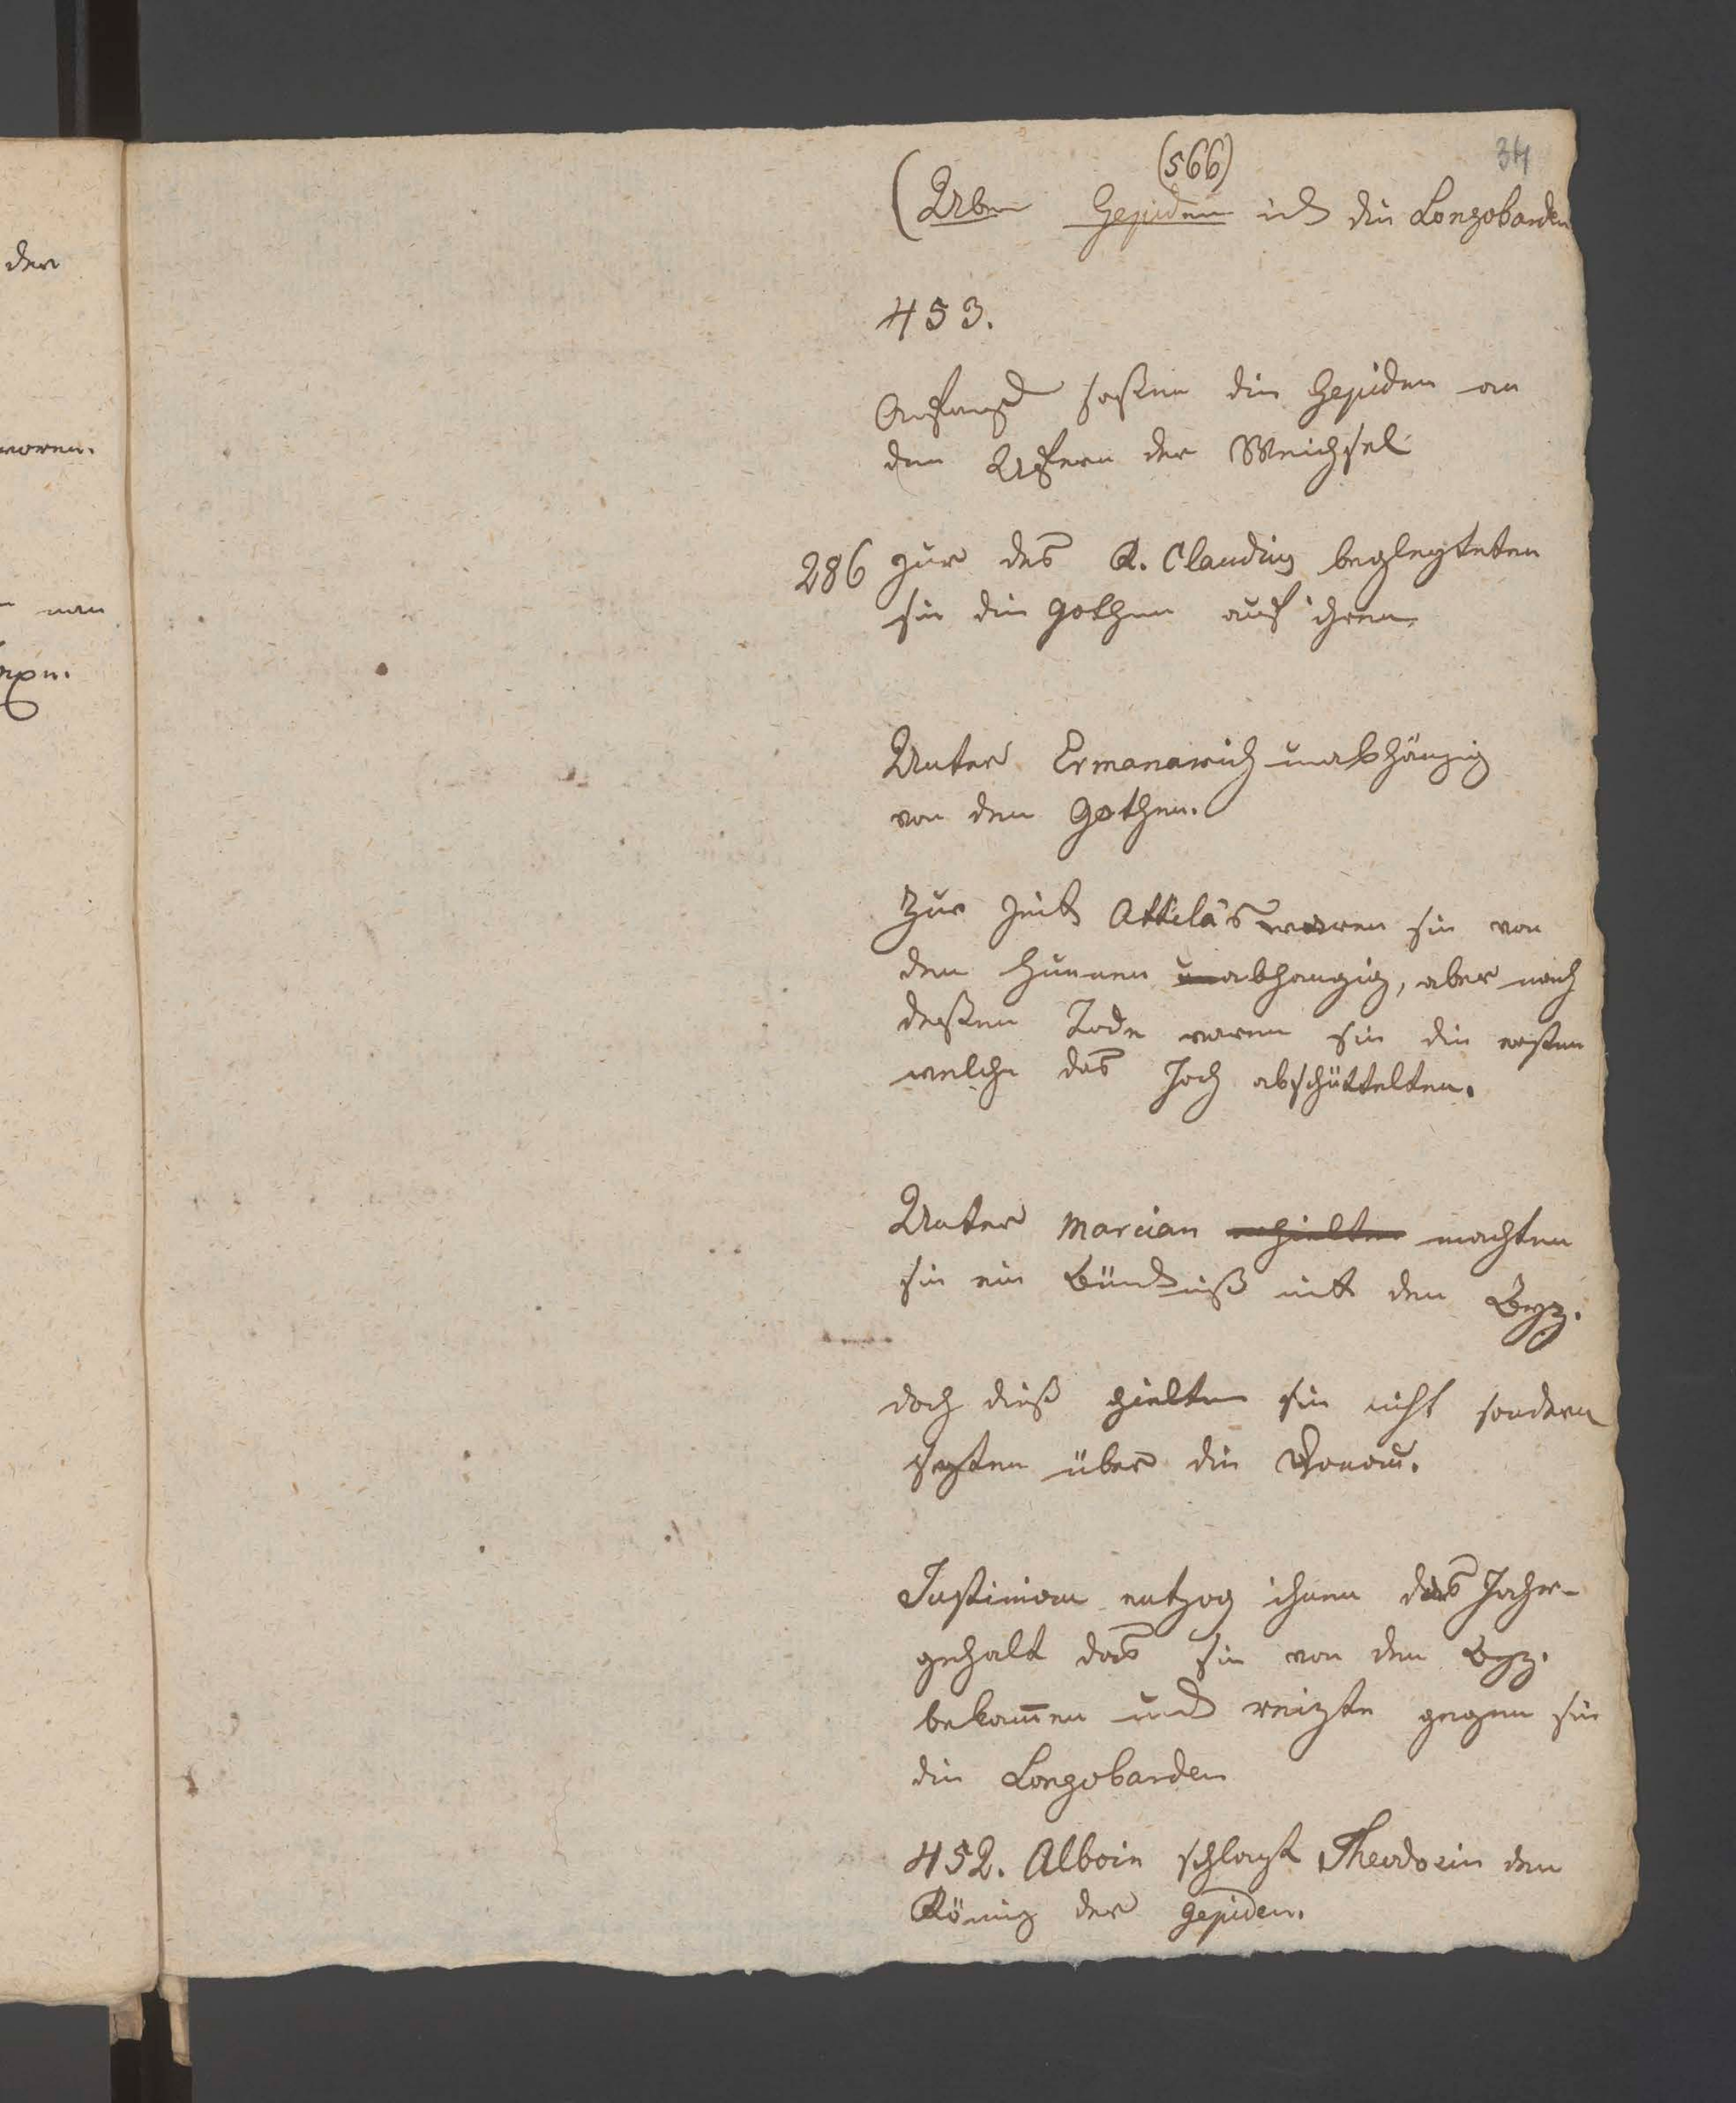 der
waren.
man
(566)
34
(Uber Gepiden und die Longobarden
453.
Anfangs saßen die Gepiden an
den Ufern der Weichsel
286 zur des K. Claudius begleyteten
sie die Gothen auf ihren
Unter Ermanarich unabhängig
von den Gothen.
Zur Zeit Attila's waren sie von
den Hunnen unabhangig, aber nach
deßen Tode waren sie die ersten
welche das Joch abschüttelten.
Unter Marcian erhielten machten
sie ein Bündniß mit den Byz.
doch dieß hielten sie nicht sondern
setzten über die Donau.
Justinian entzog ihnen das Jahr-
gehalt das sie von den Byz.
bekamen und reizte gegen sie
die Longobarden
452. Alboin schlagt Theodosin den
König der Gepiden.